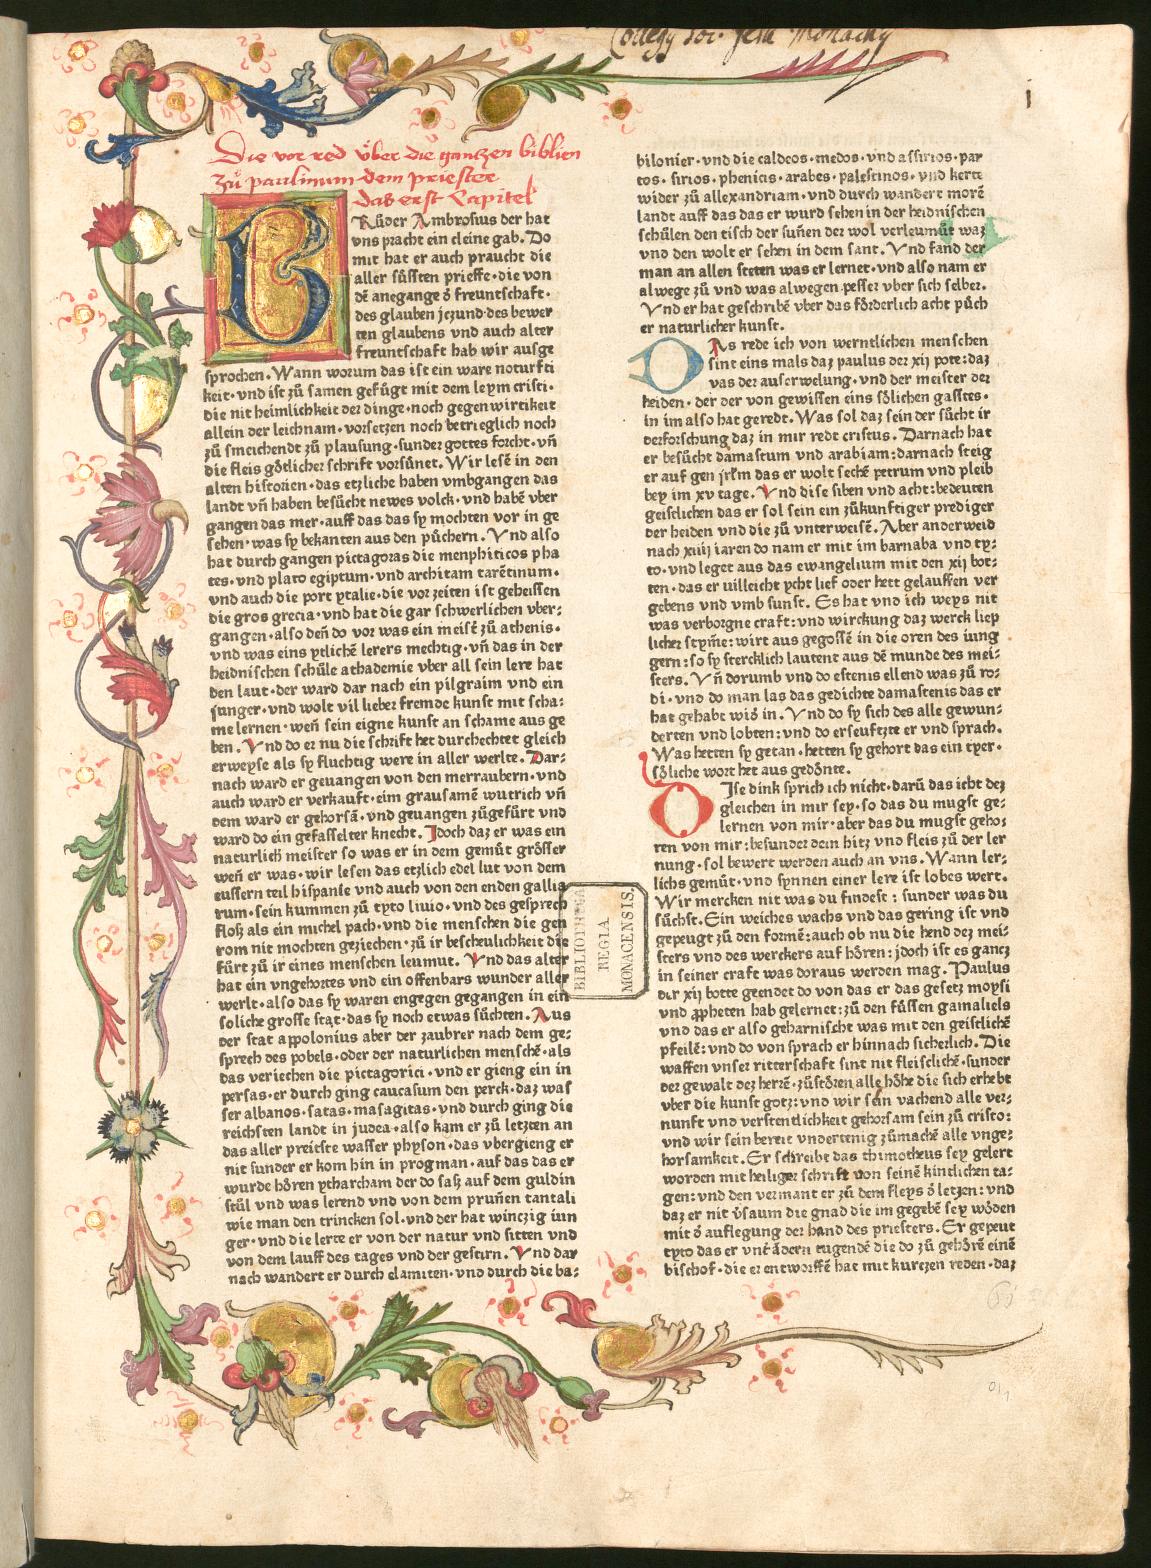 Collegij Soc. Jesu Monachij
i
Die vor red vͤber die gantzen biblien
zuͤ paulinum dem priester
das erst Capitel
BRůder Ambrosius der hat
vns pracht ein cleine gab. Do
mit hat er auch praucht die
aller suͤssten prieffe·die von
dē anegange d̄ freuntschaft·
des glauben jezund·des bewer
ten glaubens vnd auch alter
freuntschaft hab wir ausge
sprochen. Wann worum das ist ein ware noturfti
keit·vnd ist zů samen gefůgt mit dem leym cristi·
die nit heimlichkeit der dinge·noch gegenwirtikeit
allein der leichnam·vorsetzen noch betrieglich noch
zů smeichendt zů plausung·sunder gottes forcht·vn̄
die fleis goͤtlicher schrift vorsuͤnet. Wir lesē in den
alten historien·das etzliche haben vmbgangen das
landt vn̄ haben besůcht newes volck·vnd habē vber
gangen das mer·auff das das sy mochten vor in ge
sehen·was sy bekanten aus den půchern. Vnd also
hat durch gangen pictagoras die menphiticos pha
tes·vnd plato egiptum·vnd architam tarētinum·
vnd auch die port ytalie·die vor zeiten ist geheissen
die gros grecia·vnd hat die gar schwerlichen vber⸗
gangen·also den̄ do vor was ein meistē zů athenis·
vnd was eins ytlichē lerers mechtig·vn̄ das in der
heidnischen schůle achademie vber all sein lere hat
den laut·der ward dar nach ein pilgraim vnd ein
iunger·vnd wolt vil lieber fremde kunst mit scha⸗
me lernen·wen̄ sein eigne kunst an schame aus ge
ben. Vnd do er nu die schrift het durchechtet gleich
erweyse als sy fluchtig were in aller werlte. Dar⸗
nach ward er geuangen von den merraubern·vnd
auch ward er verkauft·eim grausamē wutrich vn̄
dem ward er gehorsā·vnd geuangen zůgefuͤrt vnd
ward do ein gefasselter knecht. Jdoch daz er was ein
naturlich meister so was er in dem gemuͤt groͤsser
wen̄ er was·wir lesen das etzlich edel lut von dem
eussern teil hispanie vnd auch von den enden gallia
rum·sein kummen zů tyto liuio·vnd des gesprech
floß als ein michel pach·vnd die menschen die gen
rom nit mochten geziechen·zů ir bescheulichkeit die
fuͤrt zů ir eines menschen leumut. Vnd das alter
hat ein vngehortes vnd ein offenbars wunder aller
werlt·also das sy waren engegen gegangen in ein
soliche grosse stat·das sy noch etwas sůchten. Aus
der stat apolonius aber der zaubrer nach dem ge⸗
sprech des pobels·oder der naturlichen menschē·als
das veriechen die pictagorici·vnd er gieng ein in
persas·er durch ging caucasum den perck·daz was
ser albanos·satas·masagitas·vnd durch ging die
reichsten landt in judea·also kam er zů letzten an
das aller preitste wasser physon·das vbergieng er
nit sunder er kom hin in progman·auf das das er
wurde hoͤren ytharcham der do saß auf dem guldin
stůl vnd was lerend vnd von dem prun̄en tantali
wie man den trincken sol·vnd der hat winczig iun
ger·vnd die lerte er von der natur vnd sitten vnd
von dem lauff des tages vnd der gestirn. Vnd dar
nach wandert er durch elamiten·vnd durch die ba⸗
bilonier·vnd die caldeos·medos·vnd assirios·par
tos·sirios·phenicas·arabes·palestinos·vnd kerte
wider zů allexandriam·vnd durch wandert morē
landt auff das das er wurd sehen in der heidnischen
schůlen den tisch der sun̄en der wol verleumut waz
vnd den wolt er sehen in dem sant. Vnd fand der
man an allen steten was er lernet·vnd also nam er
alwege zů vnd was alwegen pesser vber sich selber.
Vnd er hat geschribē vber das foͤrderlich acht půch
er naturlicher kunst.
DAs rede ich von werntlichen menschen
sint eins mals daz paulus der xij pote: daz
vas der auserwelung·vnd der meister der
heiden·der der von gewissen eins soͤlichen gastes·
in im also hat geredt. Was sol daz sein der sůcht ir
derforschung daz in mir redt cristus. Darnach hat
er besůcht damascum vnd arabiam: darnach steig
er auf gen jrl̄m das er wolt sechē petrum vnd pleib
bey im xv tage. Vnd dise siben vnd acht: bedeuten
geistlichen das er sol sein ein zůkunftiger prediger
der heiden vnd die zů vnterweisē. Aber anderweid
nach xiiij iaren do nam er mit im barnaba vnd ty⸗
to·vnd leget aus das ewangelium mit den xij bot⸗
ten·das er villeicht ycht lief oder hett gelauffen ver
gebens vnd vmb sunst. Es hat vnd ich weys nit
was verborgne craft: vnd wirckung daz werck liep
licher stym̄e: wirt aus gegossē in die oren des iung
gern: so sy sterchlich lautent aus dē munde des mei⸗
sters. Vn̄ dorumb vnd do estenis ellend was zů ro⸗
di·vnd do man las das gedichte damastenis das er
hat gehabt wid̄ in. Vnd do sy sich des alle gewun⸗
derten vnd lobten: vnd do erseufzte er vnd sprach.
Was hetten sy getan·hetten sy gehort das ein tyer·
soͤliche wort het aus gedoͤnte.
DIse dink sprich ich nicht·darū das icht dez
gleichen in mir sey·so das du mugst ge⸗
lernen von mir·aber das du mugst gehoͤ⸗
ren von mir: besunder dein hitz vnd fleis zů der ler
nung·sol bewert werden auch an vns. Wann ler⸗
lichs gemuͤt·vnd synnen einer lere ist lobes wert.
Wir mercken nit was du findest: sunder was du
sůchst. Ein weiches wachs vnd das gering ist vnd
gepeugt zů den formē: auch ob nu die hend dez mei⸗
sters vnd des werckers auf hoͤren: jdoch ist es gancz
in seiner craft was doraus werden mag. Paulus
der xij botte geendet do von das er das gesetz moysi
vnd ꝓpheten hab gelernet: zů den fuͤssen gamaliels
vnd das er also geharnischt was mit den geistlichē
pfeilē: vnd do von sprach er hinnach sicherlich. Die
waffen vnser ritterschaft sint nit fleischlichē·sunder
der gewalt dez herrē·zůstoͤren alle hoͤhe die sich erhebt
vber die kunst gotz: vnd wir sein vachend alle ver⸗
nunft vnd verstentlichkeit gehorsam sein zů cristo:
vnd wir sein bereit vndertenig zůmachē alle vnge⸗
horsamkeit. Er schreibt das thimotheus sey gelert
worden mit heiliger schrift von seinē kintlichen ta⸗
gen: vnd den vermant er zů dem fleys d̄ letzen: vnd
daz er nit v̄saum die gnad die im gegebē sey wōden
mit d̄ auflegung der hand des priesters. Er gepeut
tyto das er vnt̄ ādern tugendē die do zů gehoͤrē einē
bischof·die er entworffē hat mit kurtzen reden·daz
BIBLIOTHECA
REGIA
MONACENSIS